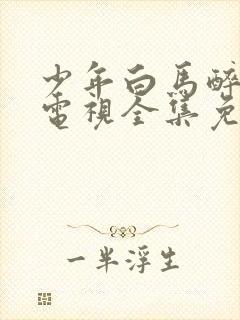 少年白馬醉
電視全集免
一半浮生